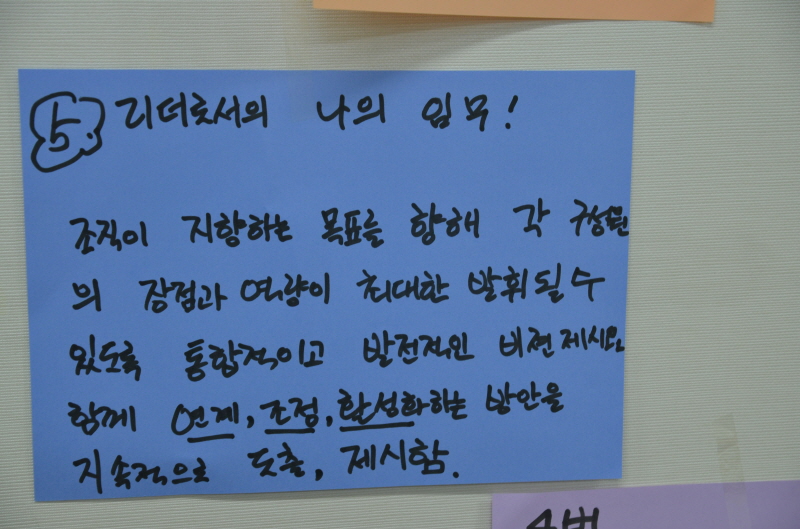 5. 리더로서의 나의 임무!
조직이 지향하는 목표를 향해 각 구성원
의 장점과 역량이 최대한 발휘될 수
있도록 통합적이고 발전적인 비젼 제시와
함께 연계, 조정, 활성화하는 방안을
지속적으로 도출, 제시함.
4번